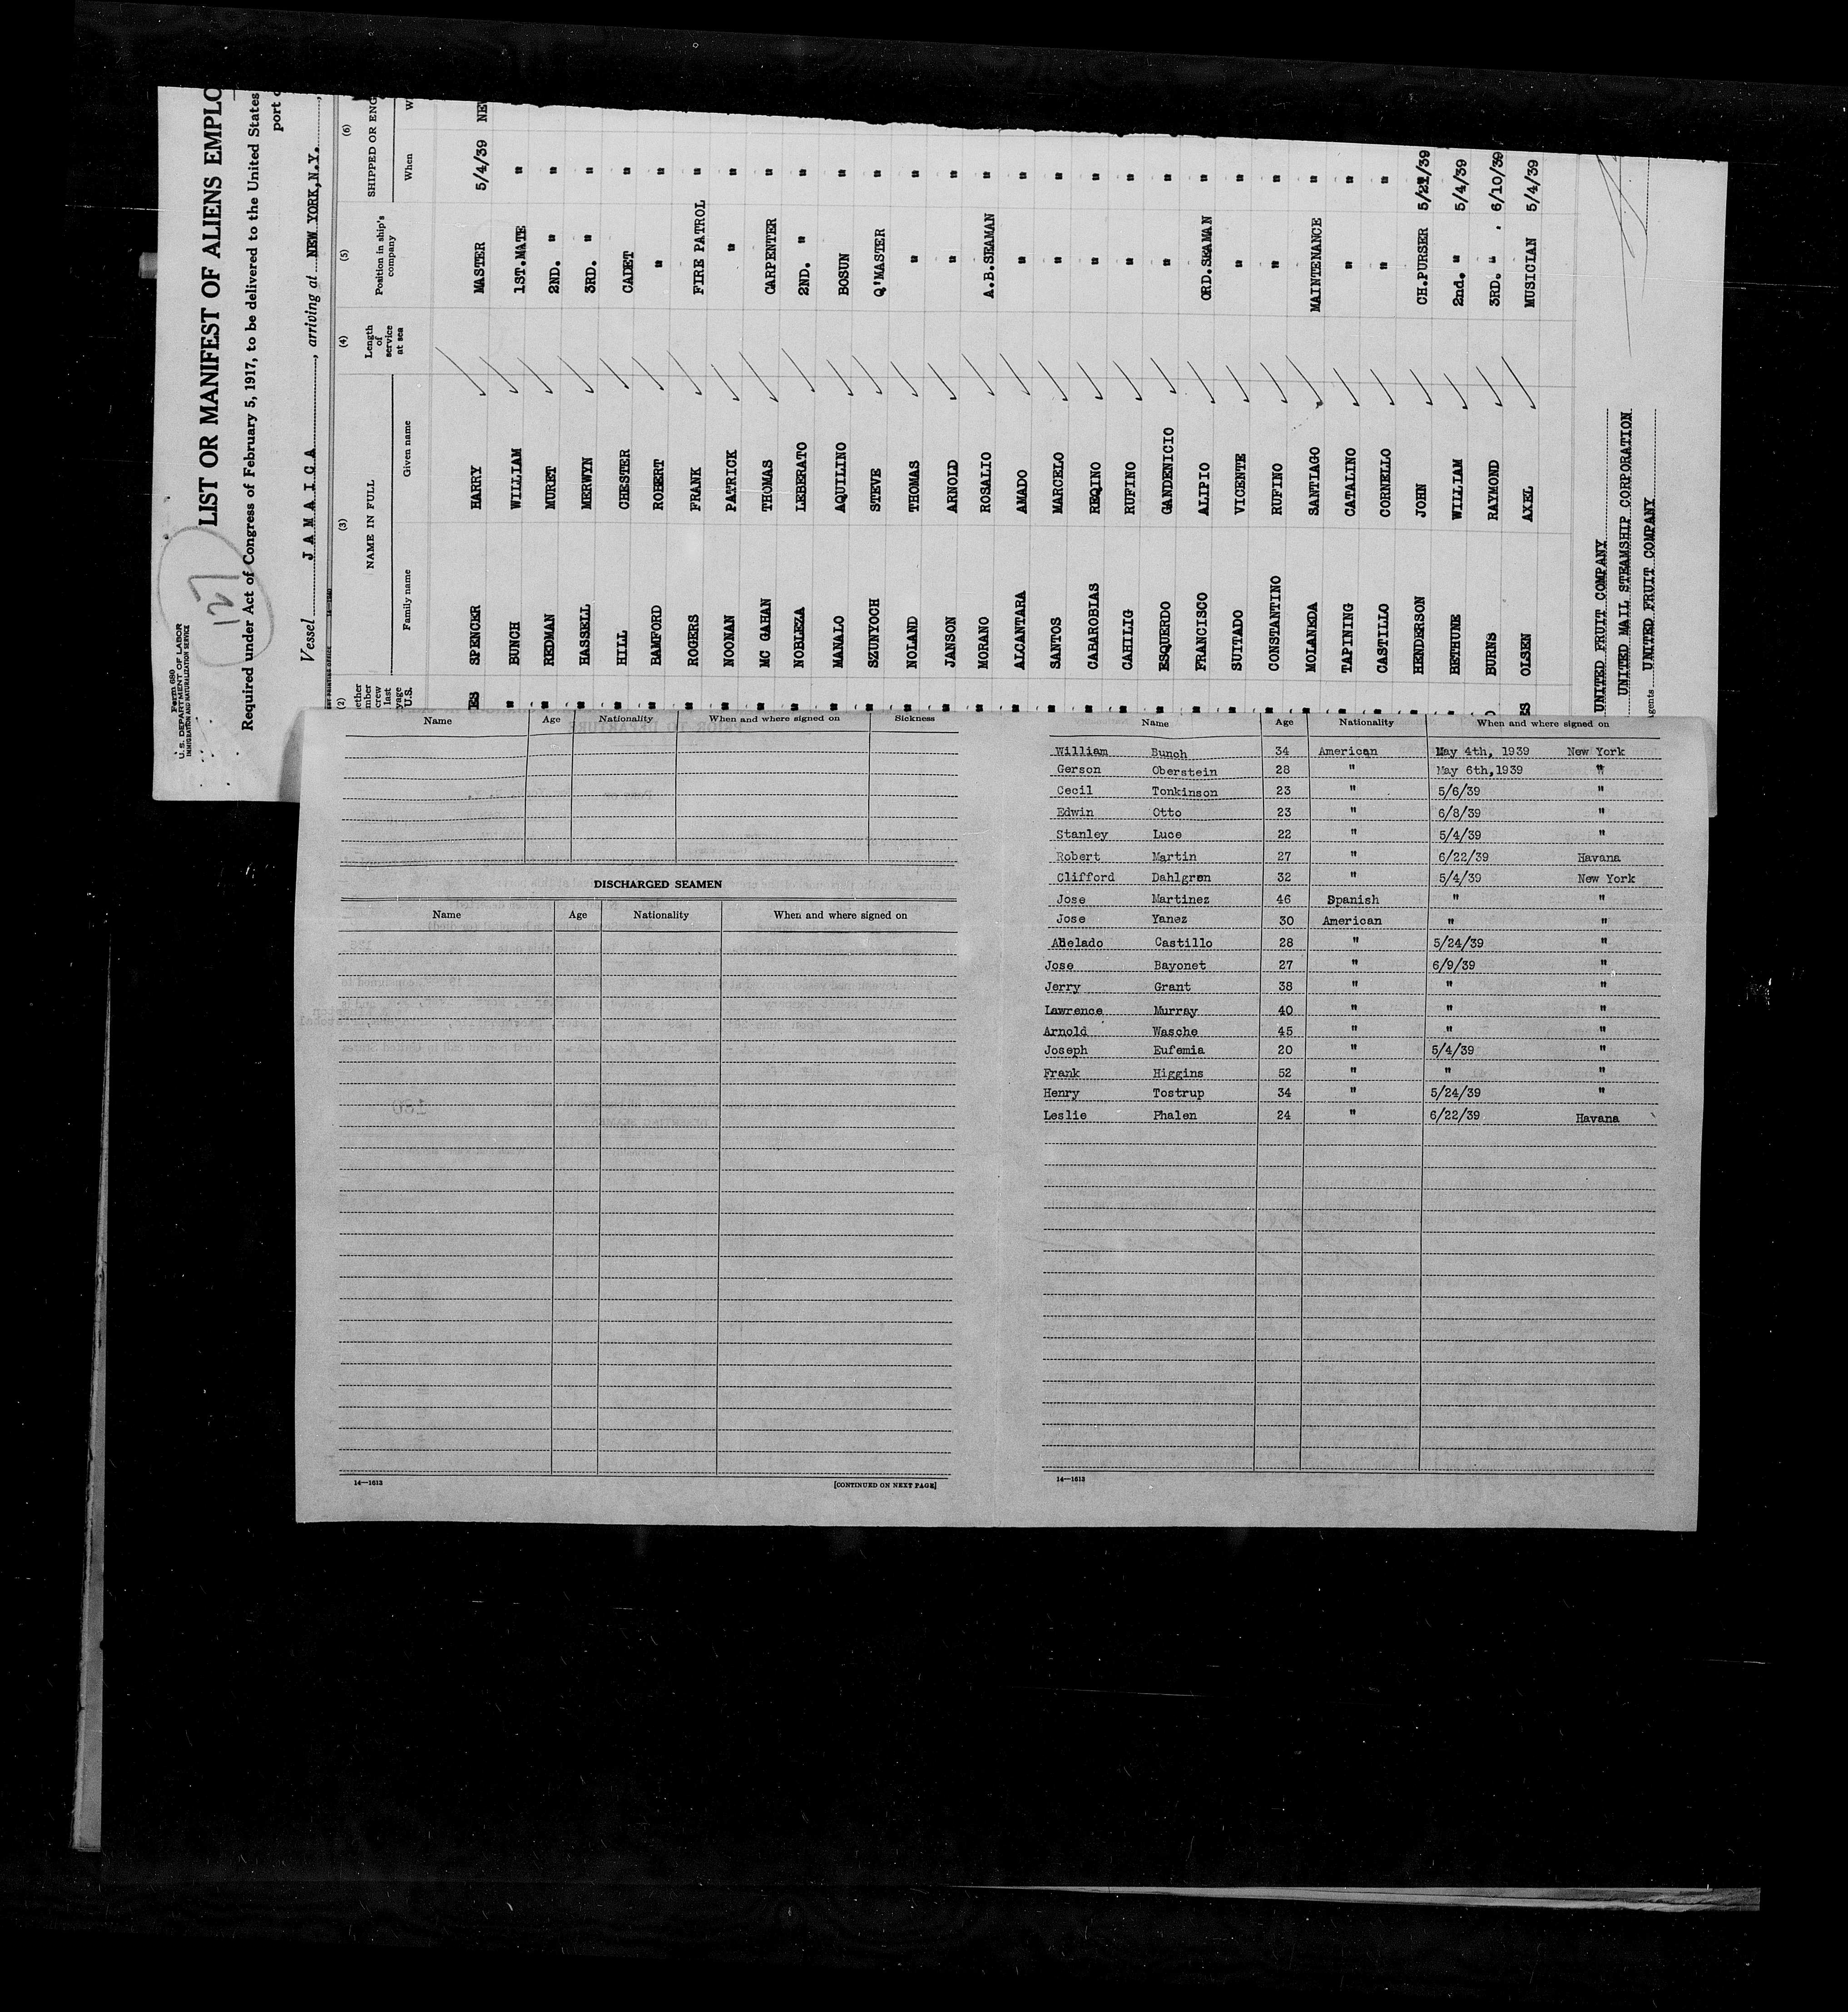 Form 680
U. S. DEPARTMENT OF LABOR
IMMIGRATION AND NATURALIZATION SERVICE
121
LIST OR MANIFEST OF ALIENS EMPLO
Required under Act of Congress of February 5, 1917, to be delivered to the United States
port
Vessel JAMAICA, arriving at NEW YORK,N.Y.,
(2) (3) (4) (5) (6)
NAME IN FULL Length of service at sea Position in ship's company SHIPPED OR ENG
Family name Given name When
SPENCER HARRY MASTER 5/4/39 NE
" BUNCH WILLIAM 1ST.MATE "
" REDMAN MURET 2ND. " "
" HASSELL MERWYN 3RD. " "
" HILL CHESTER CADET "
" BAMFORD ROBERT " "
" ROGERS FRANK FIRE PATROL "
" NOONAN PATRICK " "
" MC GAHAN THOMAS CARPENTER "
" NOBLEZA LEBERATO 2ND. " "
" MANALO AQUILINO BOSUN "
" SZUNYOCH STEVE Q'MASTER "
" NOLAND THOMAS " "
" JANSON ARNOLD " "
" MORANO ROSALIO A.B.SEAMAN "
" ALCANTARA AMADO " "
" SANTOS MARCELO " "
" CABAROBIAS REQINO " "
" CAHILIG RUFINO " "
" ESQUERDO GANDENICIO " "
" FRANCISCO ALIPIO ORD.SEAMAN "
" SUITADO VICENTE " "
" CONSTANTINO RUFINO " "
" MOLANEDA SANTIAGO MAINTENANCE "
" TAPINING CATALINO " "
" CASTILLO CORNELLO " "
" HENDERSON JOHN CH.PURSER 5/21/39
" BETHUNE WILLIAM 2nd. " 5/4/39
BURNS RAYMOND 3RD. " 6/10/39
OLSEN AXEL MUSICIAN 5/4/39
UNITED FRUIT COMPANY
UNITED MAIL STEAMSHIP CORPORATION
Agents UNITED FRUIT COMPANY
Name Age Nationality When and where signed on Sickness
DISCHARGED SEAMEN
Name Age Nationality When and where signed on
14—1613 [CONTINUED ON NEXT PAGE]
Name Age Nationality When and where signed on
William Bunch 34 American May 4th, 1939 New York
Gerson Oberstein 28 " May 6th,1939 "
Cecil Tonkinson 23 " 5/6/39 "
Edwin Otto 23 " 6/8/39 "
Stanley Luce 22 " 5/4/39 "
Robert Martin 27 " 6/22/39 Havana
Clifford Dahlgren 32 " 5/4/39 New York
Jose Martinez 46 Spanish " "
Jose Yanez 30 American " "
Abelado Castillo 28 " 5/24/39 "
Jose Bayonet 27 " 6/9/39 "
Jerry Grant 38 " " "
Lawrence Murray 40 " " "
Arnold Wasche 45 " " "
Joseph Eufemia 20 " 5/4/39 "
Frank Higgins 52 " " "
Henry Tostrup 34 " 5/24/39 "
Leslie Phalen 24 " 6/22/39 Havana
14—1613